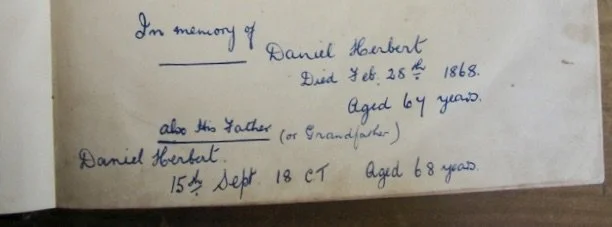 In memory of
Daniel Herbert
Died Feb. 28th 1868.
Aged 67 years.
also His Father (or Grandfather)
Daniel Herbert.
15th Sept 18 CT Aged 68 years.